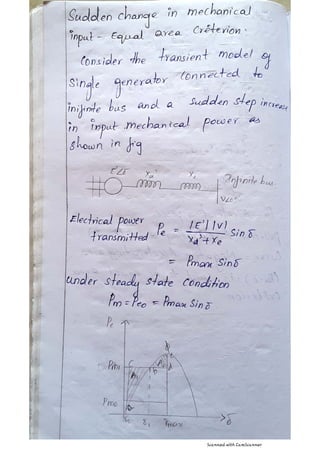 Sudden change in mechanical
input - Equal area Criterion.
Consider the transient model of
single generator Connected to
inifinite bus and a Sudden step increase
in input mechanical power as
shown in fig
E∠δ Xd' Xe Infinite bus
V∠0°
Electrical power
transmitted Pe = |E'| |V| / Xd' + Xe Sin δ
= Pmax Sinδ
under steady state condition
Pm = Peo = Pmax Sinδ
Pe
Pm1
Pm0
δ
Scanned with CamScanner